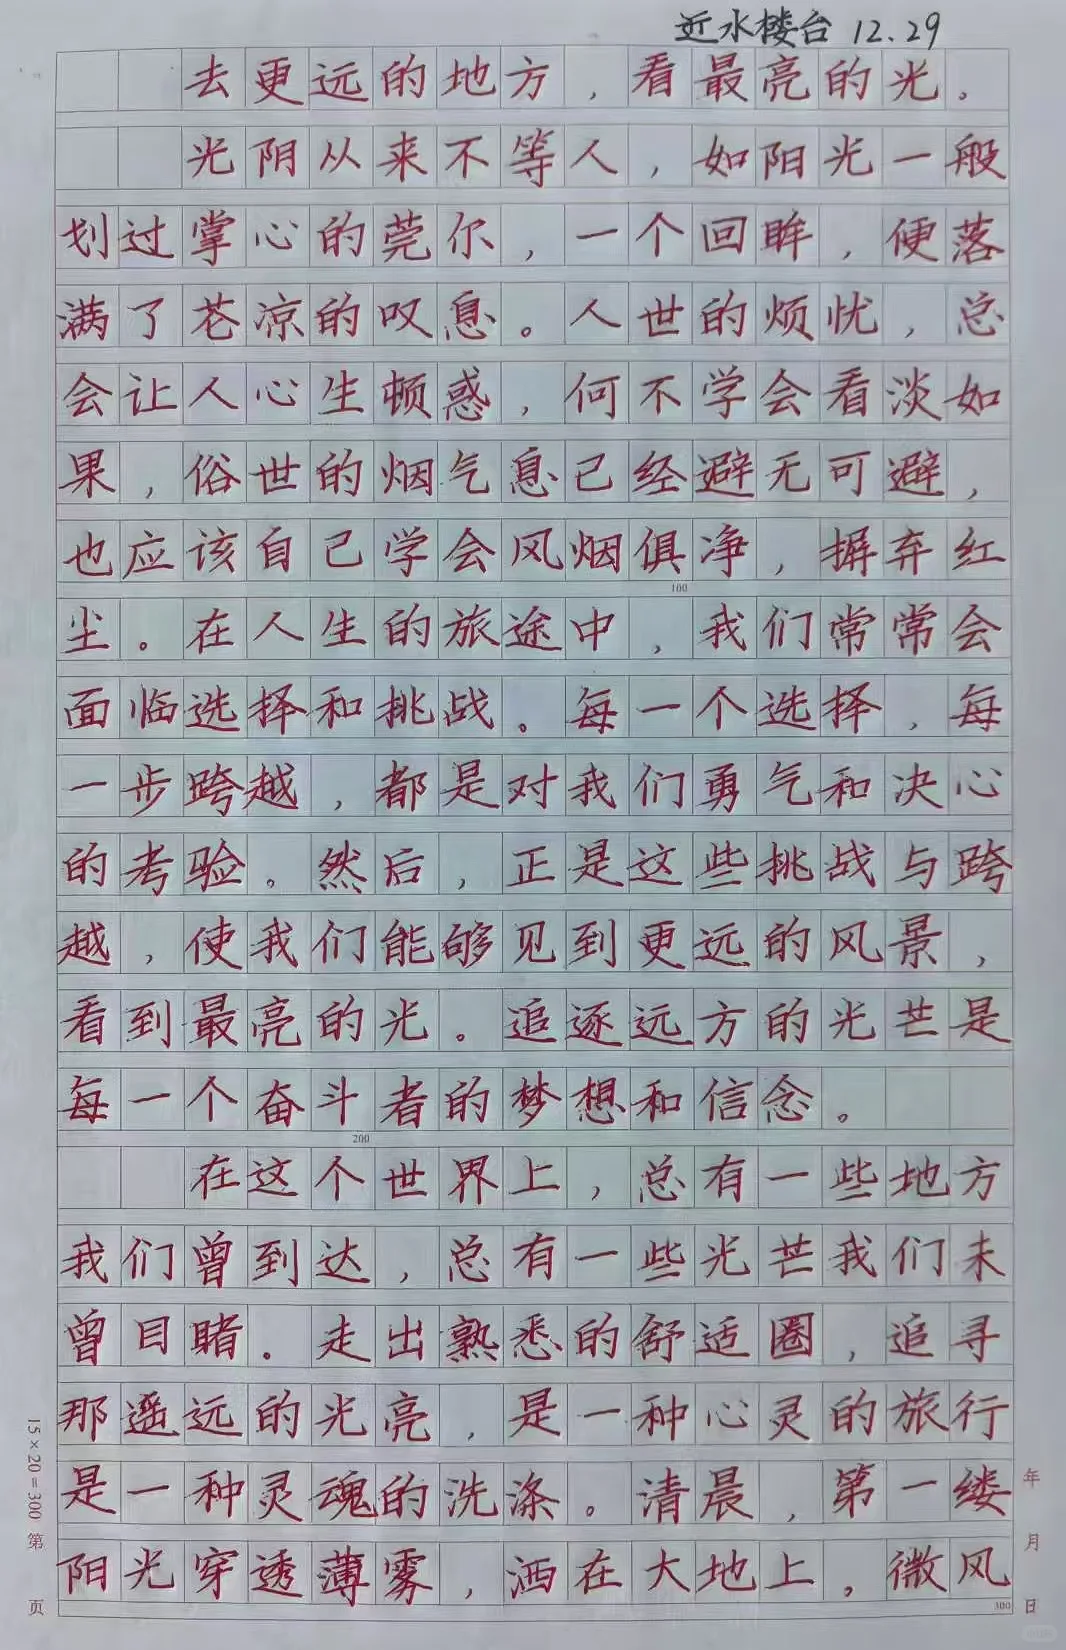 近水楼台 12.29
去更远的地方，看最亮的光。
光阴从来不等人，如阳光一般
划过掌心的莞尔，一个回眸，便落
满了苍凉的叹息。人世的烦忧，总
会让人心生顿惑，何不学会看淡如
果，俗世的烟气息已经避无可避，
也应该自己学会风烟俱净，摒弃红
100
尘。在人生的旅途中，我们常常会
面临选择和挑战。每一个选择，每
一步跨越，都是对我们勇气和决心
的考验。然后，正是这些挑战与跨
越，使我们能够见到更远的风景，
看到最亮的光。追逐远方的光芒是
每一个奋斗者的梦想和信念。
200
在这个世界上，总有一些地方
我们曾到达，总有一些光芒我们未
曾目睹。走出熟悉的舒适圈，追寻
那遥远的光亮，是一种心灵的旅行
是一种灵魂的洗涤。清晨，第一缕
阳光穿透薄雾，洒在大地上，微风
300
15×20=300 第 页
年 月 日